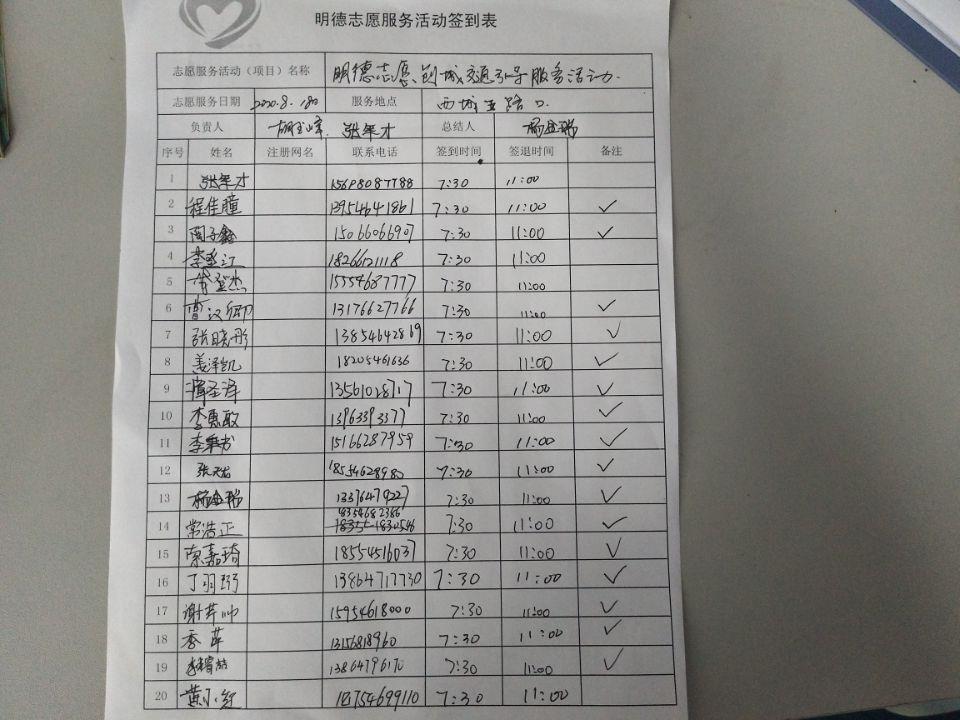 明德志愿服务活动签到表
志愿服务活动（项目）名称 明德志愿创城交通引导服务活动.
志愿服务日期 2020.8. 服务地点 西城 路口
负责人 张军才 总结人 杨金瑞
序号 姓名 注册网名 联系电话 签到时间 签退时间 备注
1 张军才 15698087788 7:30 11:00
2 程佳瞳 13954641861 7:30 11:00 ✓
3 周子鑫 15066066907 7:30 11:00 ✓
4 18266121118 7:30 11:00
5 15554687777 7:30 11:00
6 曹汉卿 13176627766 7:30 11:00 ✓
7 张晓彤 13854642869 7:30 11:00 ✓
8 姜泽凯 18205461636 7:30 11:00 ✓
9 13561028717 7:30 11:00 ✓
10 李惠敏 13963393377 7:30 11:00 ✓
11 15166287959 7:30 11:00 ✓
12 18554628980 7:30 11:00 ✓
13 杨金瑞 13376479227 7:30 11:00 ✓
14 常浩正 18354682386 7:30 11:00 ✓
15 宗嘉琦 18554516037 7:30 11:00 ✓
16 丁羽 13864717730 7:30 11:00 ✓
17 15954618000 7:30 11:00 ✓
18 13156818960 7:30 11:00 ✓
19 13864796170 7:30 11:00 ✓
20 黄小红 18754699110 7:30 11:00